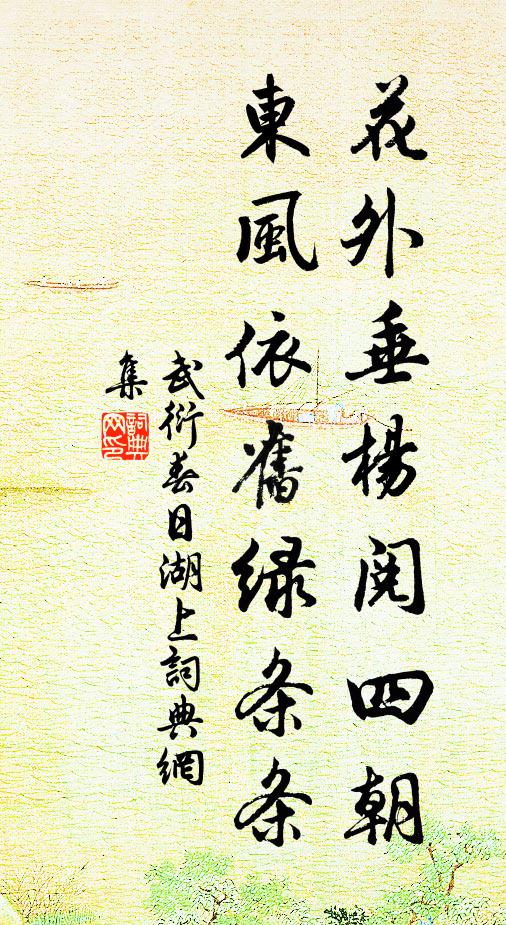 花外垂楊閱四朝
東風依舊緑条条
武衍春日湖上詞典網
集
詞典网印